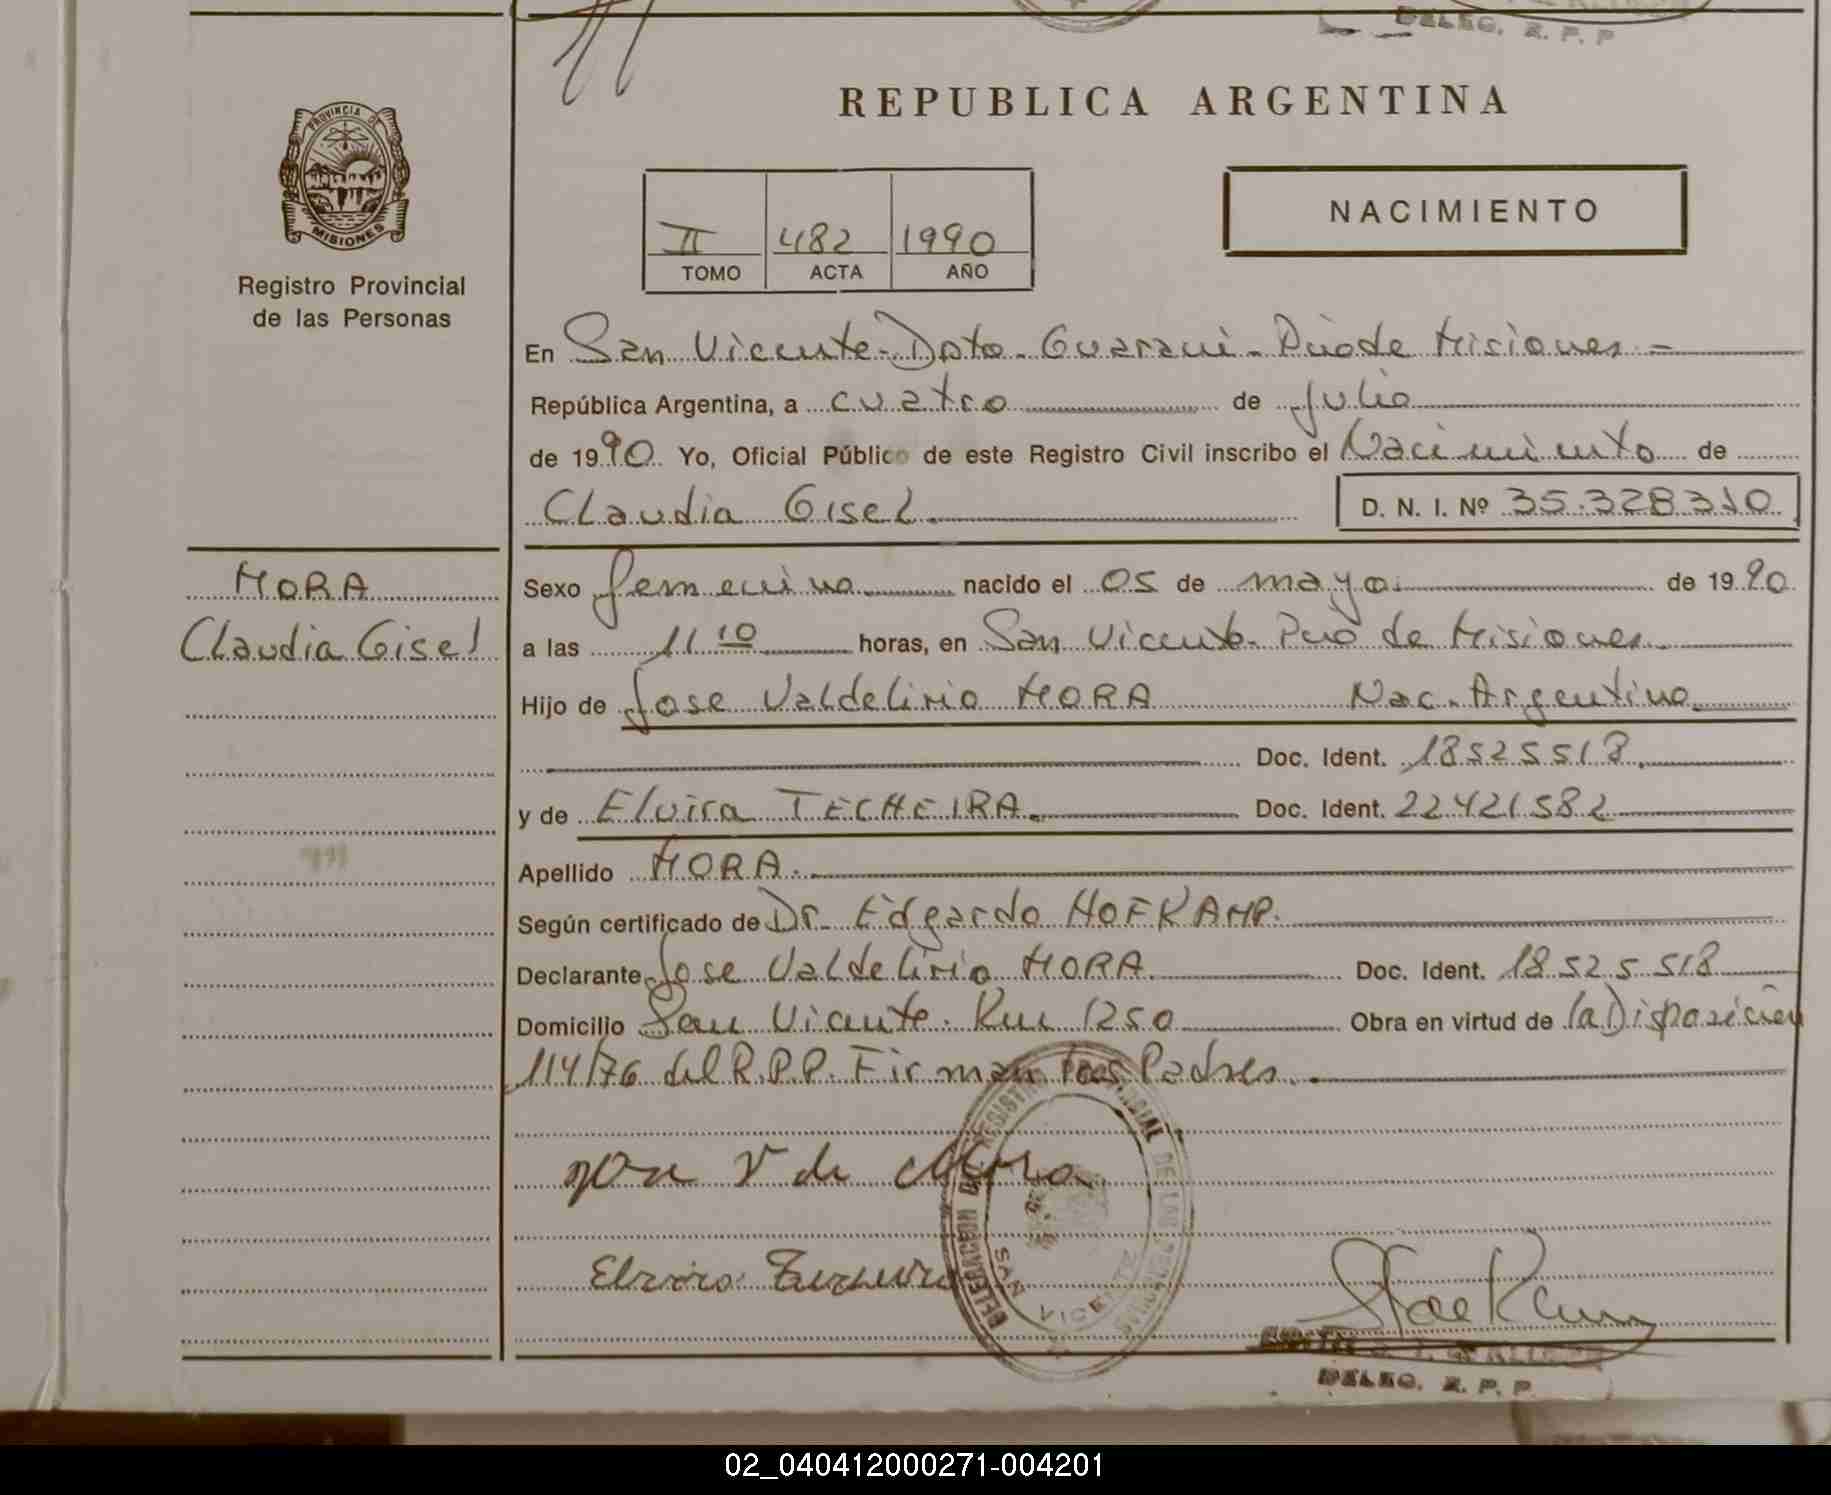 DELEG. R. P. P
PROVINCIA D
MISIONES
Registro Provincial
de las Personas
REPUBLICA ARGENTINA
II 482 1990
TOMO ACTA AÑO
NACIMIENTO
En San Vicente - Dpto. Guarani - Pcia de Misiones -
República Argentina, a cuatro de julio
de 1990 Yo, Oficial Público de este Registro Civil inscribo el Nacimiento de
Claudia Gisel. D. N. I. Nº 35.328310
MORA
Claudia Gisel
Sexo femenino nacido el 05 de mayo de 1990
a las 11 10 horas, en San Vicente - Pcia de Misiones
Hijo de Jose Valdelirio MORA Nac. Argentina
Doc. Ident. 18525518
y de Elvira TECHEIRA. Doc. Ident. 22421582
Apellido MORA.
Según certificado de Dr. Edgardo HOFKAMP.
Declarante Jose Valdelirio MORA Doc. Ident. 18525518
Domicilio San Vicente. Km 1250 Obra en virtud de la Disposición
114/76 del R.P.P. Firman los Padres.
DELEGACION DEL REGISTRO PROVINCIAL DE LAS PERSONAS
SAN VICENTE
DELEG. R. P. P.
02_040412000271-004201